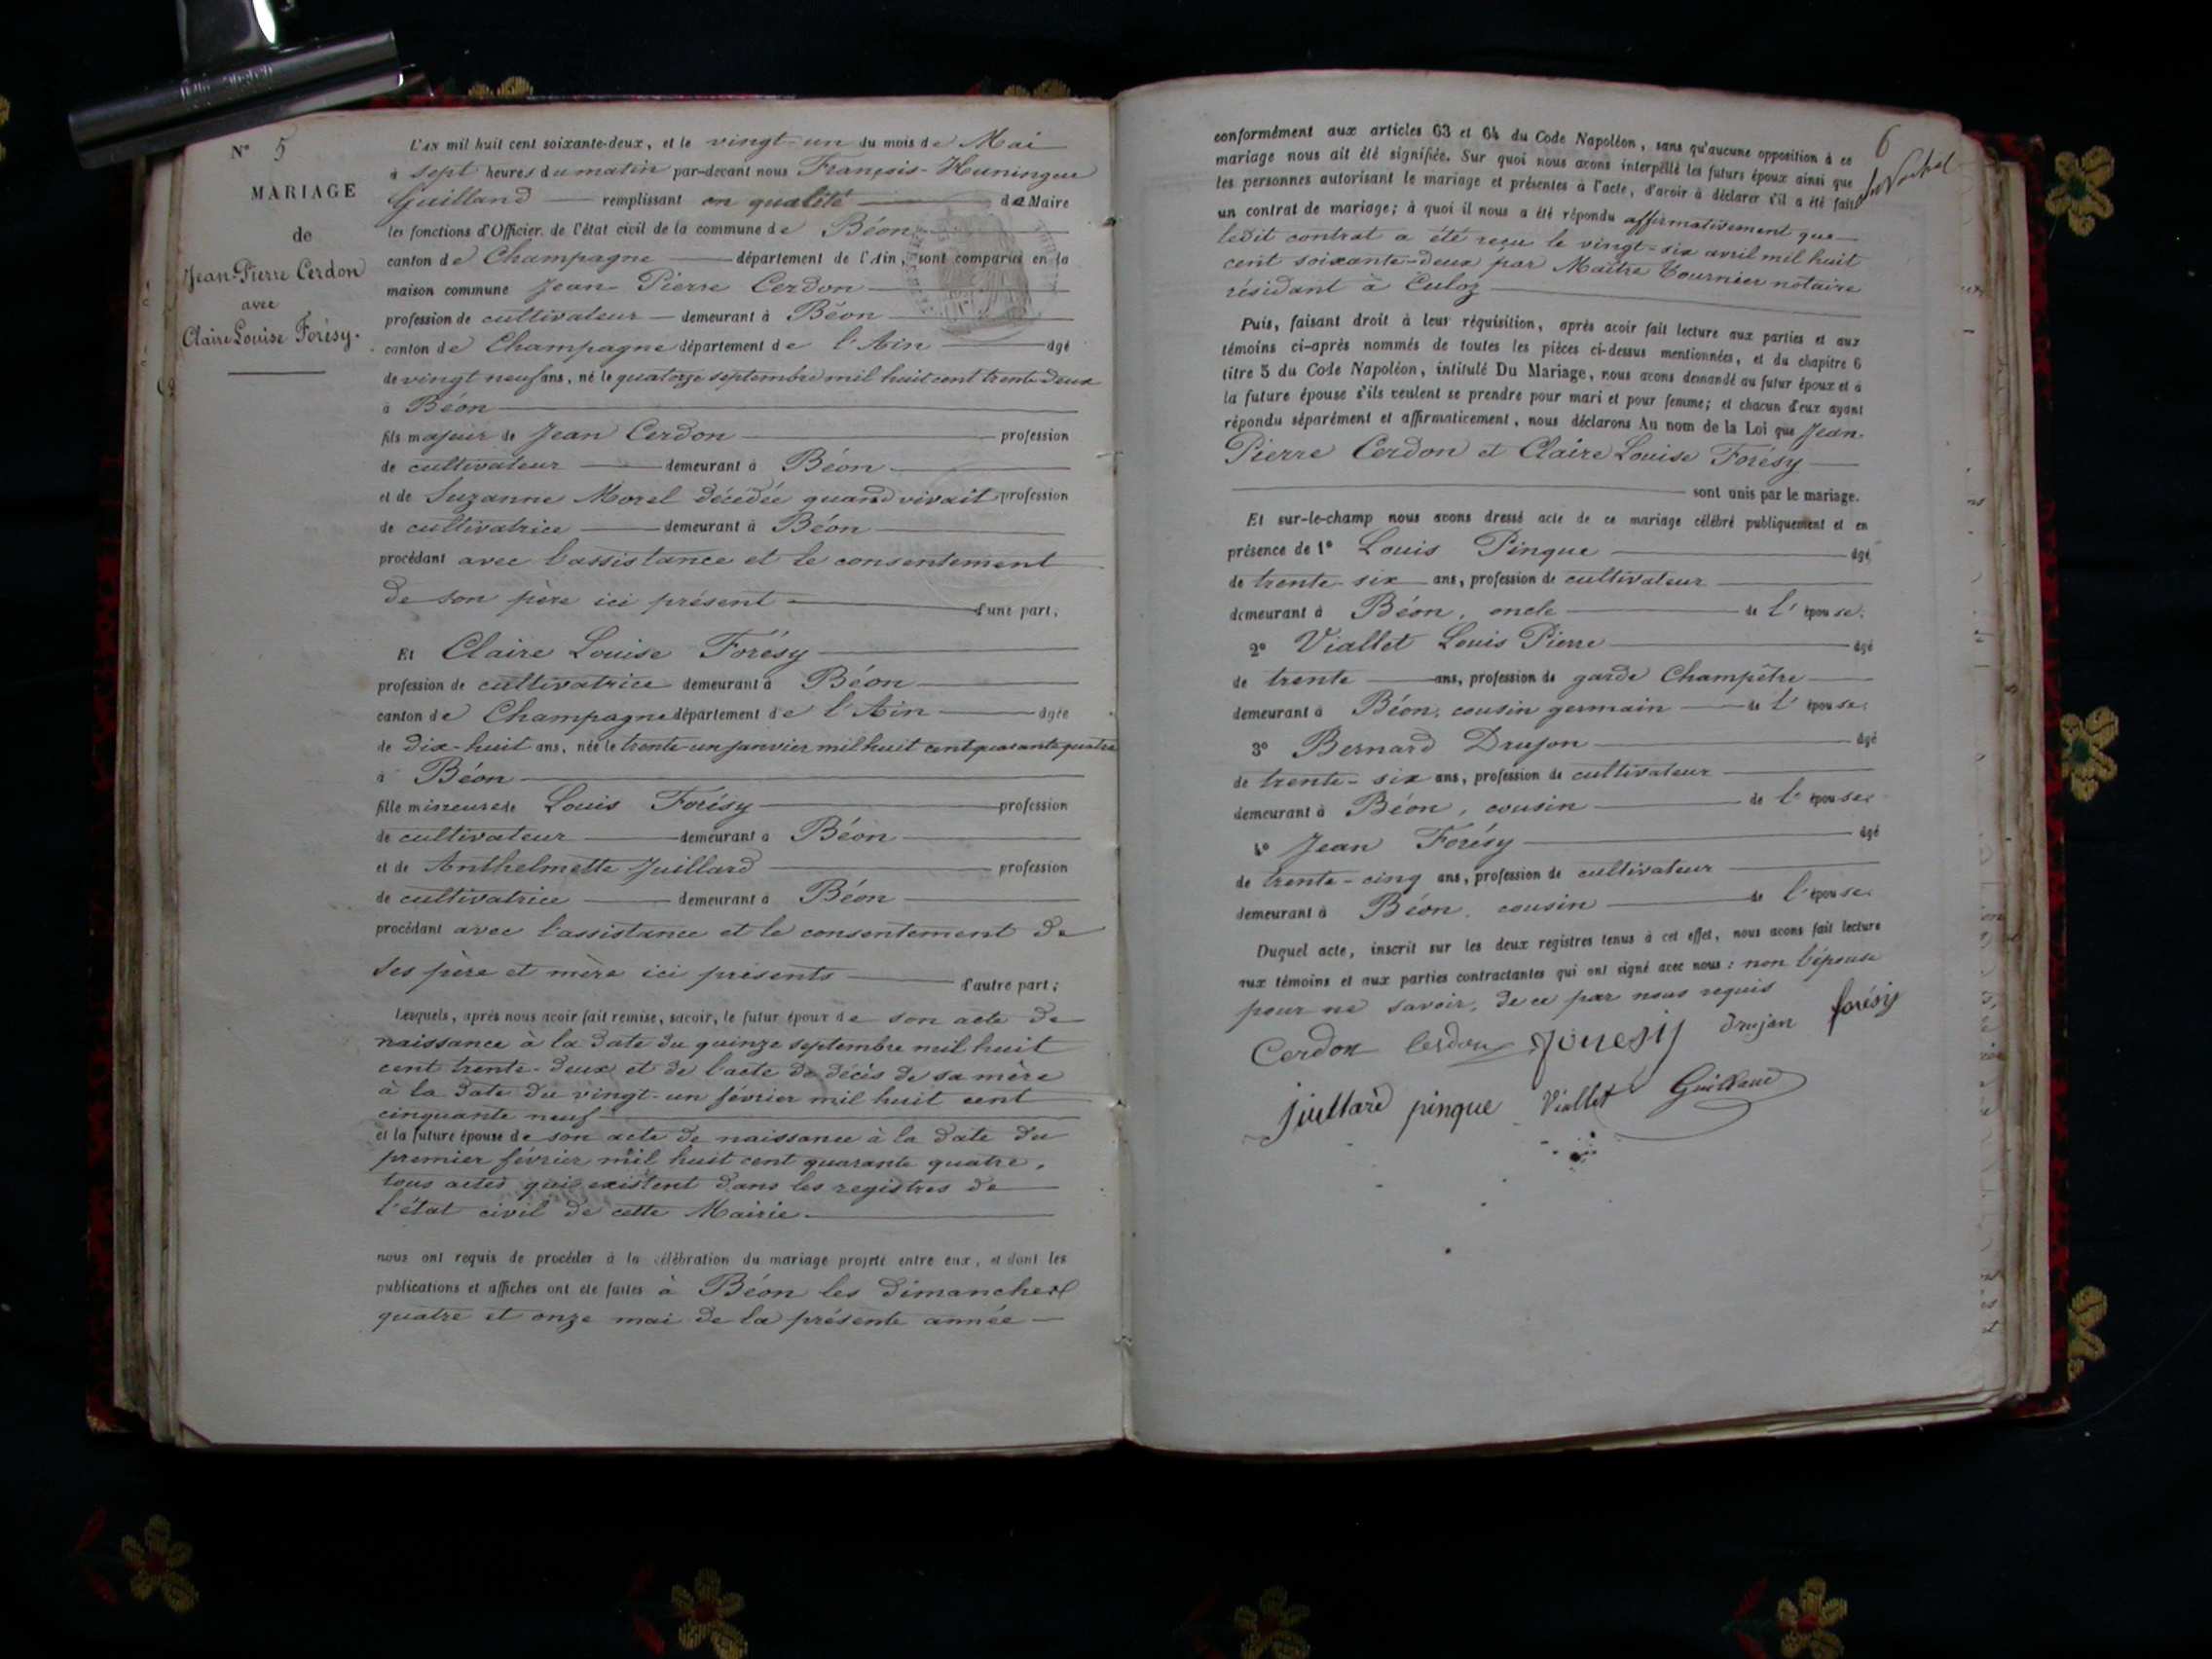 N° 5
MARIAGE
de
Jean-Pierre Cerdon
avec
Claire Louise Forésy.
L'an mil huit cent soixante-deux, et le vingt-un du mois de Mai
à sept heures du matin par-devant nous François-Huningue
Guilland remplissant en qualité de Maire
les fonctions d'Officier de l'état civil de la commune de Béon
canton de Champagne département de l'Ain, sont comparus en la
maison commune Jean-Pierre Cerdon
profession de cultivateur demeurant à Béon
canton de Champagne département de l'Ain âgé
de vingt neuf ans, né le quatorze septembre mil huit cent trente deux
à Béon
fils majeur de Jean Cerdon profession
de cultivateur demeurant à Béon
et de Suzanne Morel décédée quand vivait profession
de cultivatrice demeurant à Béon
procédant avec l'assistance et le consentement
de son père ici présent d'une part,
Et Claire Louise Forésy
profession de cultivatrice demeurant à Béon
canton de Champagne département de l'Ain âgée
de dix-huit ans, née le trente-un janvier mil huit cent quarante quatre
à Béon
fille mineure de Louis Forésy profession
de cultivateur demeurant à Béon
et de Anthelmette Juillard profession
de cultivatrice demeurant à Béon
procédant avec l'assistance et le consentement de
ses père et mère ici présents d'autre part;
Lesquels, après nous avoir fait remise, savoir, le futur époux de son acte de
naissance à la date du quinze septembre mil huit
cent trente-deux et de l'acte de décès de sa mère
à la date du vingt-un février mil huit cent
cinquante neuf
et la future épouse de son acte de naissance à la date du
premier février mil huit cent quarante quatre,
tous actes qui existent dans les registres de
l'état civil de cette Mairie.
nous ont requis de procéder à la célébration du mariage projeté entre eux, et dont les
publications et affiches ont été faites à Béon les dimanches
quatre et onze mai de la présente année
6
conformément aux articles 63 et 64 du Code Napoléon, sans qu'aucune opposition à ce
mariage nous ait été signifiée. Sur quoi nous avons interpellé les futurs époux ainsi que
les personnes autorisant le mariage et présentes à l'acte, d'avoir à déclarer s'il a été fait
un contrat de mariage; à quoi il nous a été répondu affirmativement que
ledit contrat a été reçu le vingt-six avril mil huit
cent soixante-deux par Maître Tournier notaire
résidant à Culoz
Puis, faisant droit à leur réquisition, après avoir fait lecture aux parties et aux
témoins ci-après nommés de toutes les pièces ci-dessus mentionnées, et du chapitre 6
titre 5 du Code Napoléon, intitulé Du Mariage, nous avons demandé au futur époux et à
la future épouse s'ils veulent se prendre pour mari et pour femme; et chacun d'eux ayant
répondu séparément et affirmativement, nous déclarons Au nom de la Loi que Jean-
Pierre Cerdon et Claire Louise Forésy
sont unis par le mariage.
Et sur-le-champ nous avons dressé acte de ce mariage célébré publiquement et en
présence de 1° Louis Pingue âgé
de trente-six ans, profession de cultivateur
demeurant à Béon, oncle de l'épouse;
2° Viallet Louis Pierre âgé
de trente ans, profession de garde Champêtre
demeurant à Béon, cousin germain de l'épouse;
3° Bernard Drujon âgé
de trente-six ans, profession de cultivateur
demeurant à Béon, cousin de l'épouse;
4° Jean Forésy âgé
de trente-cinq ans, profession de cultivateur
demeurant à Béon, cousin de l'épouse.
Duquel acte, inscrit sur les deux registres tenus à cet effet, nous avons fait lecture
aux témoins et aux parties contractantes qui ont signé avec nous: non l'épouse
pour ne savoir, de ce par nous requis
Cerdon Cerdon Foresy Drujon forésy
juillard pingue Viallet Guilland